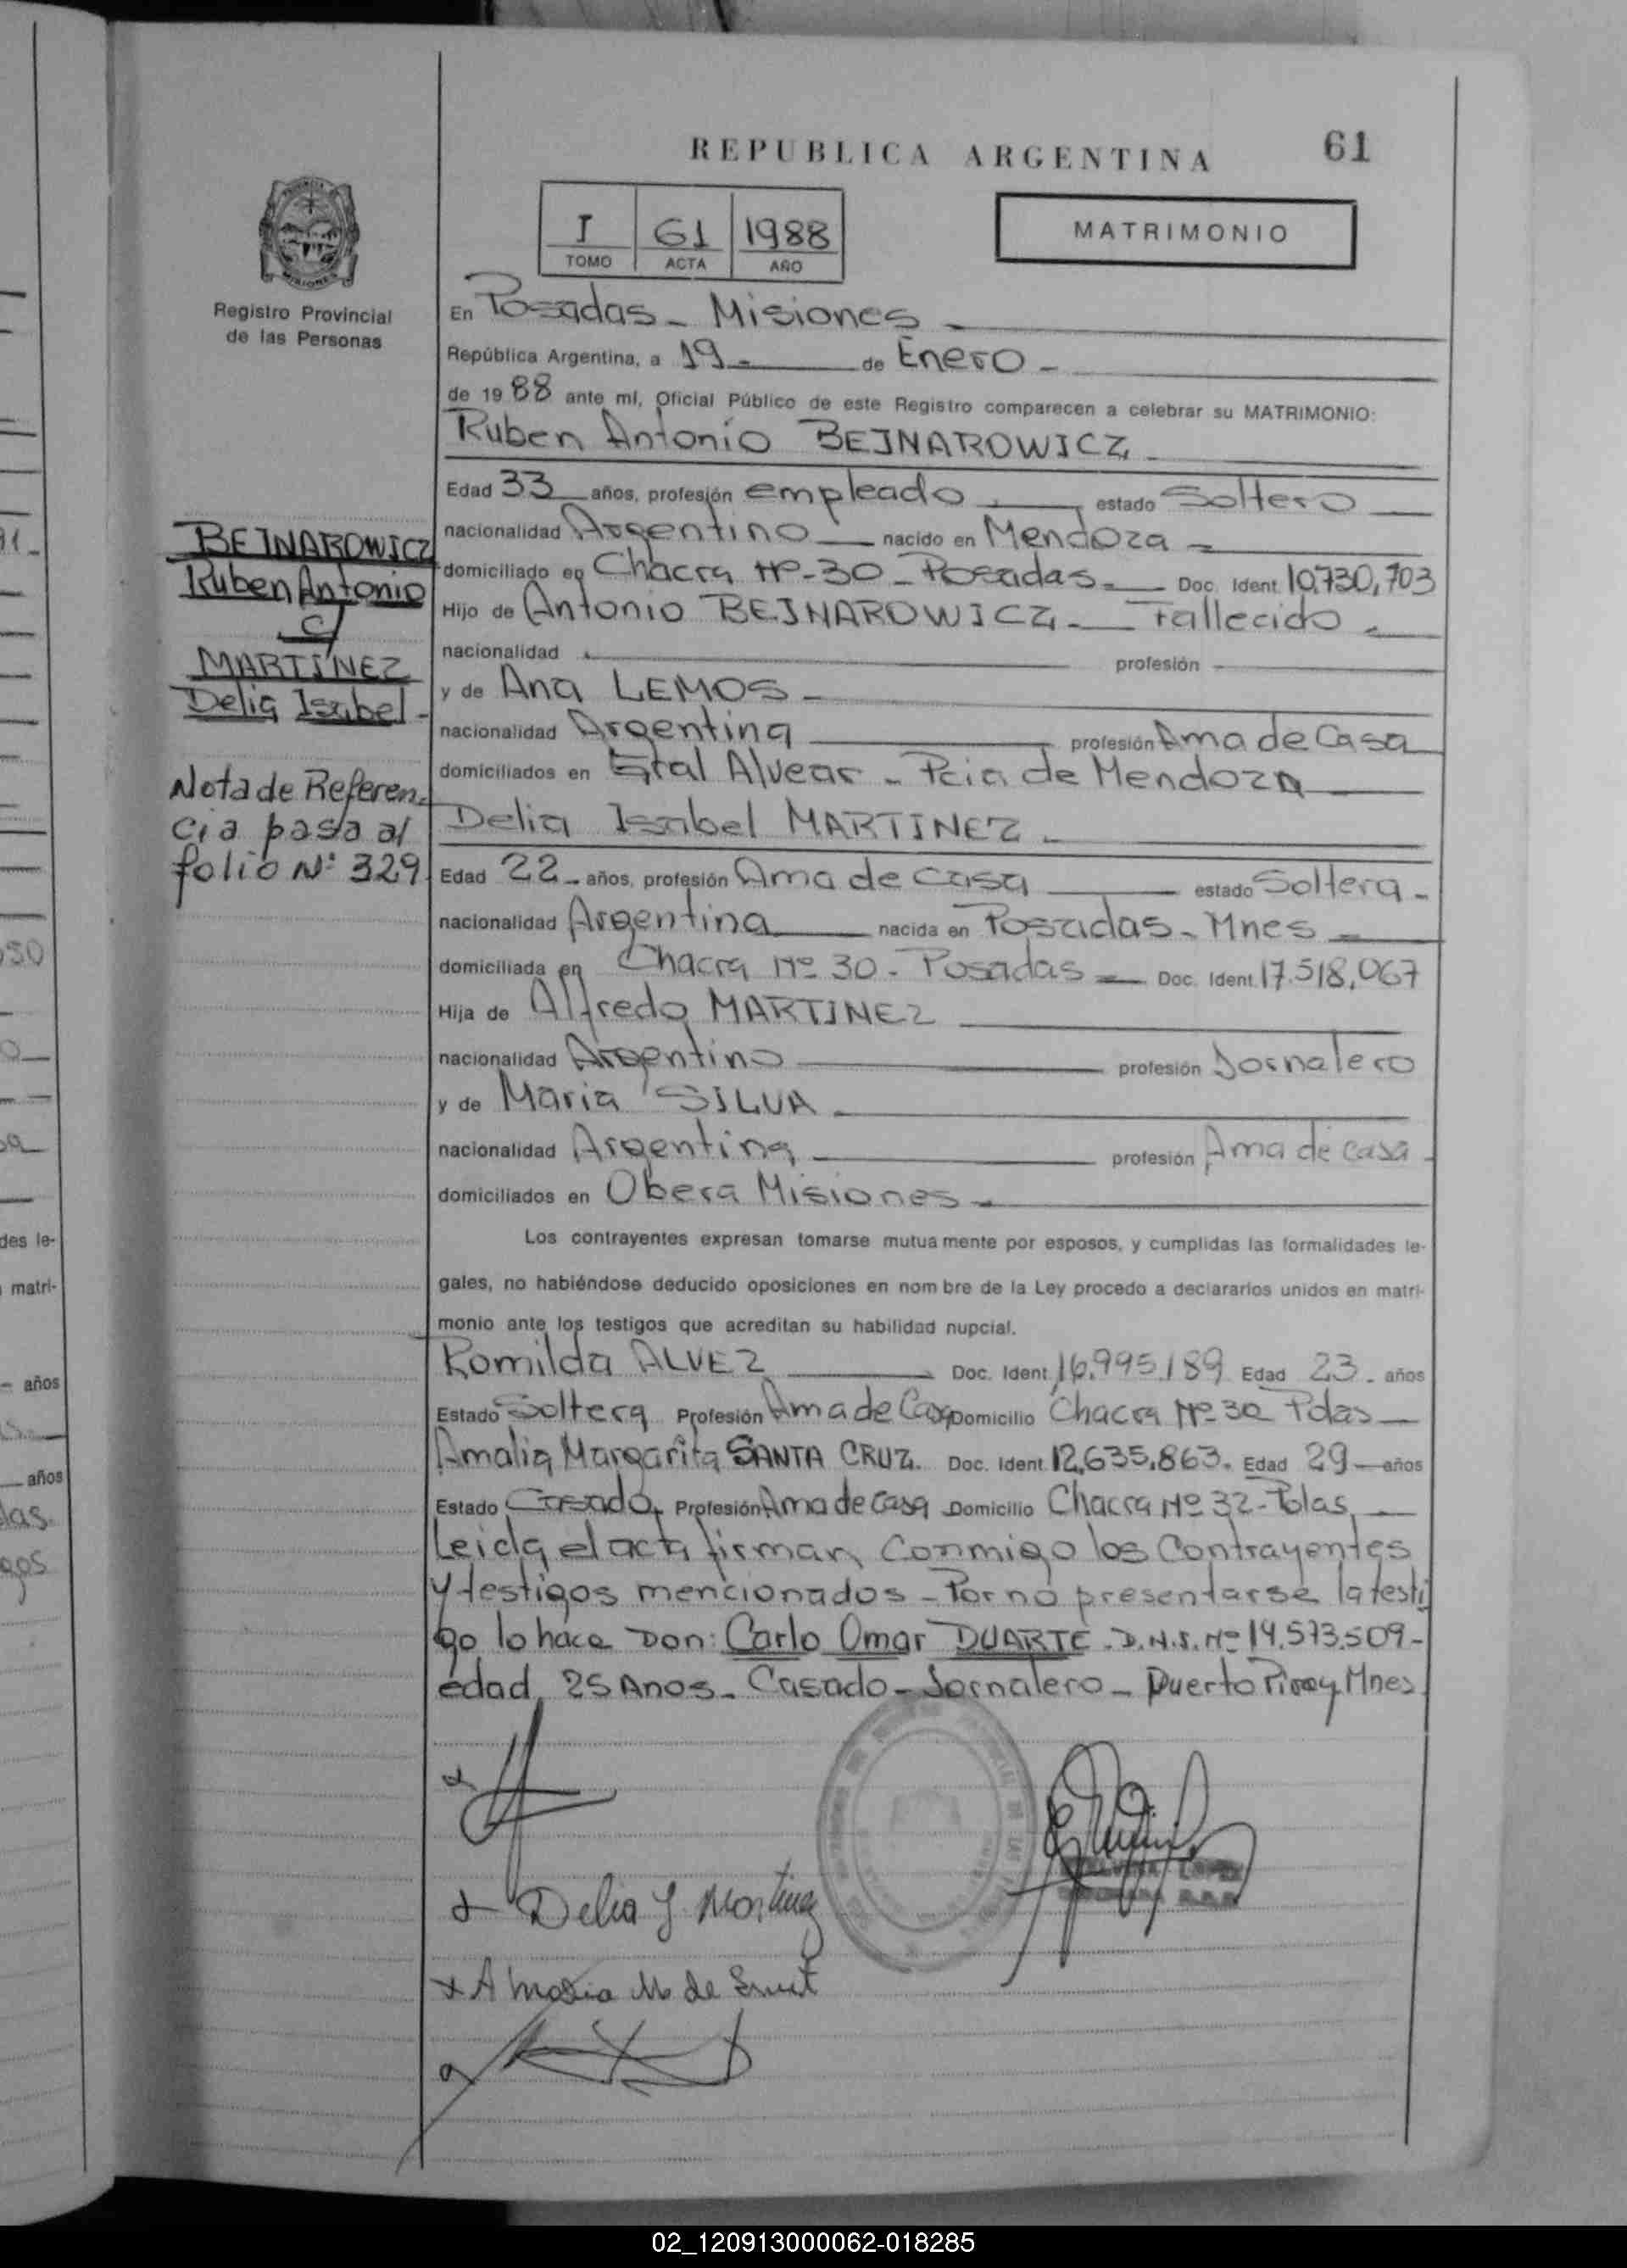 REPUBLICA ARGENTINA
61
I
61
1988
TOMO
ACTA
AÑO
MATRIMONIO
Registro Provincial
de las Personas
En Posadas - Misiones -
República Argentina, a 19 - de Enero -
de 19 88 ante mí, Oficial Público de este Registro comparecen a celebrar su MATRIMONIO:
Ruben Antonio BEJNAROWICZ -
Edad 33 años, profesión empleado estado Soltero
nacionalidad Argentino nacido en Mendoza -
domiciliado en Chacra Nº-30 - Posadas - Doc. Ident. 10,730,703
Hijo de Antonio BEJNAROWICZ - Fallecido -
nacionalidad profesión
y de Ana LEMOS -
nacionalidad Argentina profesión Ama de Casa
domiciliados en Gral Alvear - Pcia de Mendoza
Delia Isabel MARTINEZ -
Edad 22 - años, profesión Ama de casa estado Soltera -
nacionalidad Argentina nacida en Posadas - Mnes -
domiciliada en Chacra Nº 30 - Posadas - Doc. Ident. 17.518,067
Hija de Alfredo MARTINEZ
nacionalidad Argentino profesión Jornalero
y de Maria SILVA -
nacionalidad Argentina profesión Ama de casa -
domiciliados en Obera Misiones -
Los contrayentes expresan tomarse mutuamente por esposos, y cumplidas las formalidades le-
gales, no habiéndose deducido oposiciones en nombre de la Ley procedo a declararlos unidos en matri-
monio ante los testigos que acreditan su habilidad nupcial.
Romilda ALVEZ Doc. Ident. 16.995.189 Edad 23 - años
Estado Soltera Profesión Ama de Casa Domicilio Chacra Nº 30 Pdas
Amalia Margarita SANTA CRUZ. Doc. Ident. 12,635,863. Edad 29 años
Estado Casada Profesión Ama de Casa Domicilio Chacra Nº 32 - Pdas
Leida el acta firman conmigo los Contrayentes
y testigos mencionados - Por no presentarse la testi
go lo hace Don: Carlo Omar DUARTE - D.N.I. Nº 14.573.509 -
edad 25 Anos - Casado - Jornalero - Puerto Piray Mnes
BEJNAROWICZ
Ruben Antonio
c/
MARTINEZ
Delia Isabel -
Nota de Referen-
cia pasa al
folio Nº 329
Delia I. Martinez
LOPEZ
02_120913000062-018285